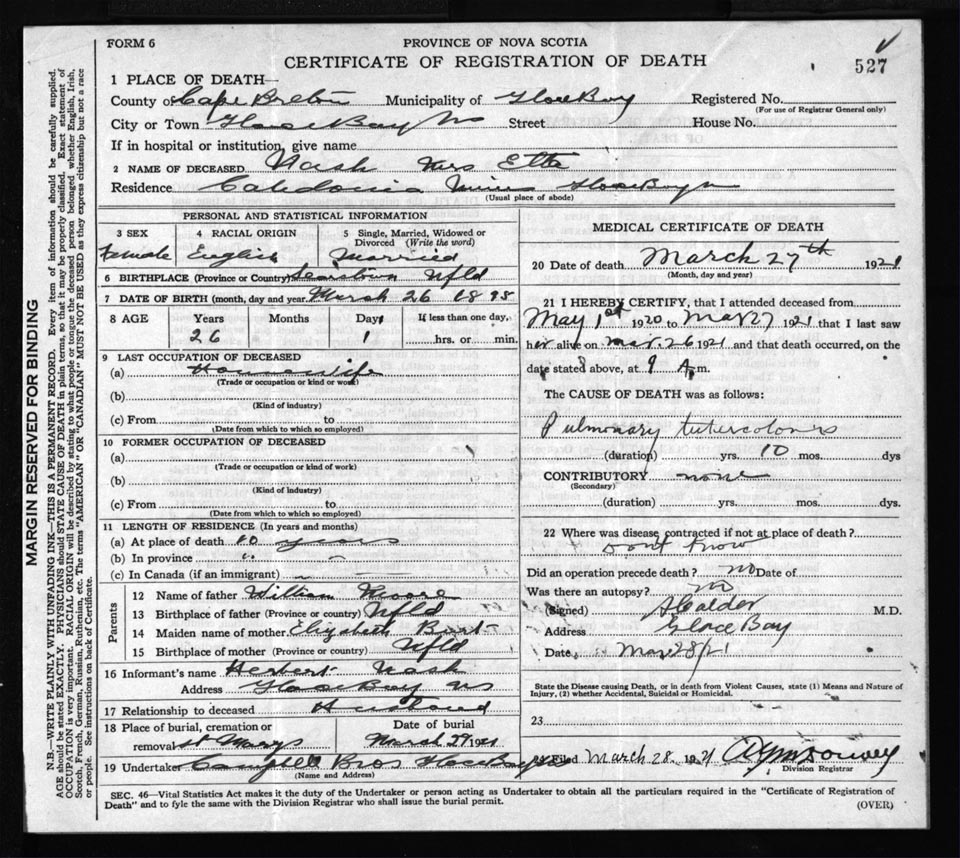 FORM 6
PROVINCE OF NOVA SCOTIA
CERTIFICATE OF REGISTRATION OF DEATH
527
1 PLACE OF DEATH—
County of Cape Breton Municipality of Glace Bay Registered No.
(For use of Registrar General only)
City or Town Glace Bay NS Street House No.
If in hospital or institution, give name
2 NAME OF DECEASED Nash Mrs Etta
Residence Caledonia Mines Glace Bay
(Usual place of abode)
PERSONAL AND STATISTICAL INFORMATION
3 SEX
Female
4 RACIAL ORIGIN
English
5 Single, Married, Widowed or Divorced (Write the word)
Married
6 BIRTHPLACE (Province or Country) Nfld
7 DATE OF BIRTH (month, day and year March 26 1895
8 AGE Years Months Days If less than one day,
26 1 hrs. or min.
9 LAST OCCUPATION OF DECEASED
(a) Housewife
(Trade or occupation or kind or work)
(b)
(Kind of industry)
(c) From to
(Date from which to which so employed)
10 FORMER OCCUPATION OF DECEASED
(a)
(Trade or occupation or kind of work)
(b)
(Kind of industry)
(c) From to
(Date from which to which so employed)
11 LENGTH OF RESIDENCE (In years and months)
(a) At place of death 10 years
(b) In province " -
(c) In Canada (if an immigrant)
Parents
12 Name of father William Moore
13 Birthplace of father (Province or country) Nfld
14 Maiden name of mother Elizabeth
15 Birthplace of mother (Province or country) Nfld
16 Informant's name Herbert Nash
Address Glace Bay NS
17 Relationship to deceased Husband
18 Place of burial, cremation or removal St Marys
Date of burial
March 29 1921
19 Undertaker Bros Glace Bay
(Name and Address)
MEDICAL CERTIFICATE OF DEATH
20 Date of death March 27th 1921
(Month, day and year)
21 I HEREBY CERTIFY, that I attended deceased from
May 1st 1920 to Mar 27 1921 that I last saw
her alive on Mar. 26 1921 and that death occurred, on the
date stated above, at 9 A.m.
The CAUSE OF DEATH was as follows:
Pulmonary tuberculosis
(duration) yrs. 10 mos. dys
CONTRIBUTORY none
(Secondary)
(duration) yrs. mos. dys.
22 Where was disease contracted if not at place of death?
Dont know
Did an operation precede death? no Date of
Was there an autopsy? no
(Signed) A Calder M.D.
Address Glace Bay
Date Mar 28/21
State the Disease causing Death, or in death from Violent Causes, state (1) Means and Nature of
Injury, (2) whether Accidental, Suicidal or Homicidal.
23
24 Filed March 28 1921
Division Registrar
SEC. 46—Vital Statistics Act makes it the duty of the Undertaker or person acting as Undertaker to obtain all the particulars required in the "Certificate of Registration of
Death" and to fyle the same with the Division Registrar who shall issue the burial permit.
(OVER)
MARGIN RESERVED FOR BINDING
N.B.—WRITE PLAINLY WITH UNFADING INK—THIS IS A PERMANENT RECORD. Every item of information should be carefully supplied.
AGE should be stated EXACTLY. PHYSICIANS should STATE CAUSE OF DEATH in plain terms, so that it may be properly classified. Exact statement of
OCCUPATION is very important. RACIAL ORIGIN will be described by stating to what people or tongue the deceased person belonged, whether English, Irish,
Scotch, French, German, Russian, Ruthenian, etc. The terms "AMERICAN" OR "CANADIAN" MUST NOT BE USED as they express citizenship but not a race
or people. See instructions on back of Certificate.